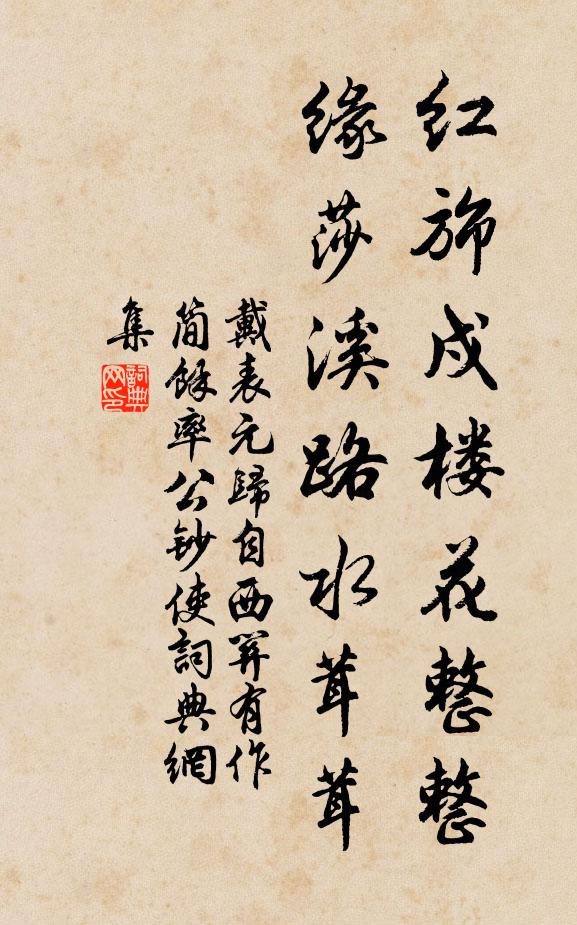 红旆戍楼花整整
缘莎溪路水茸茸
戴表元歸自西羿有作
簡馀率公鈔使詞典網
集
詞典网印